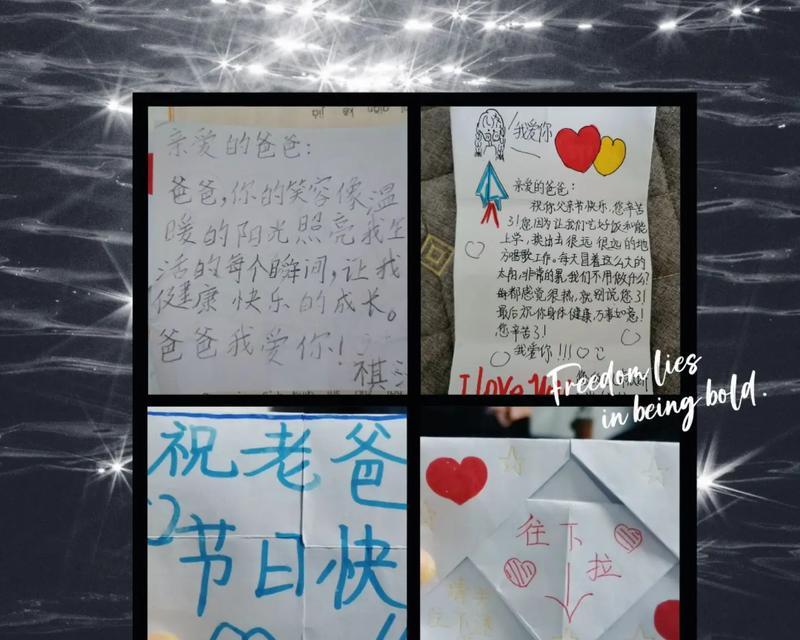 亲爱的爸爸:
爸爸,你的笑容像温
暖的阳光照亮我生
活的每个瞬间,让我
健康快乐的成长。
爸爸我爱你!
祺
我爱你
亲爱的爸爸:
祝你父亲节快乐,您辛苦
了!您因为让我们吃好饭和能
上学,
出去很远很远的地
方唱歌工作。每天冒着这么大的
太阳,非常的累,我们不用做什么?
每都感觉很热,就别说您了!
最后祝你身体健康,万事如意!
您辛苦了!
我爱你!!!
I love You
Freedom lies
in being bold.
祝老爸
节日快
往下
拉